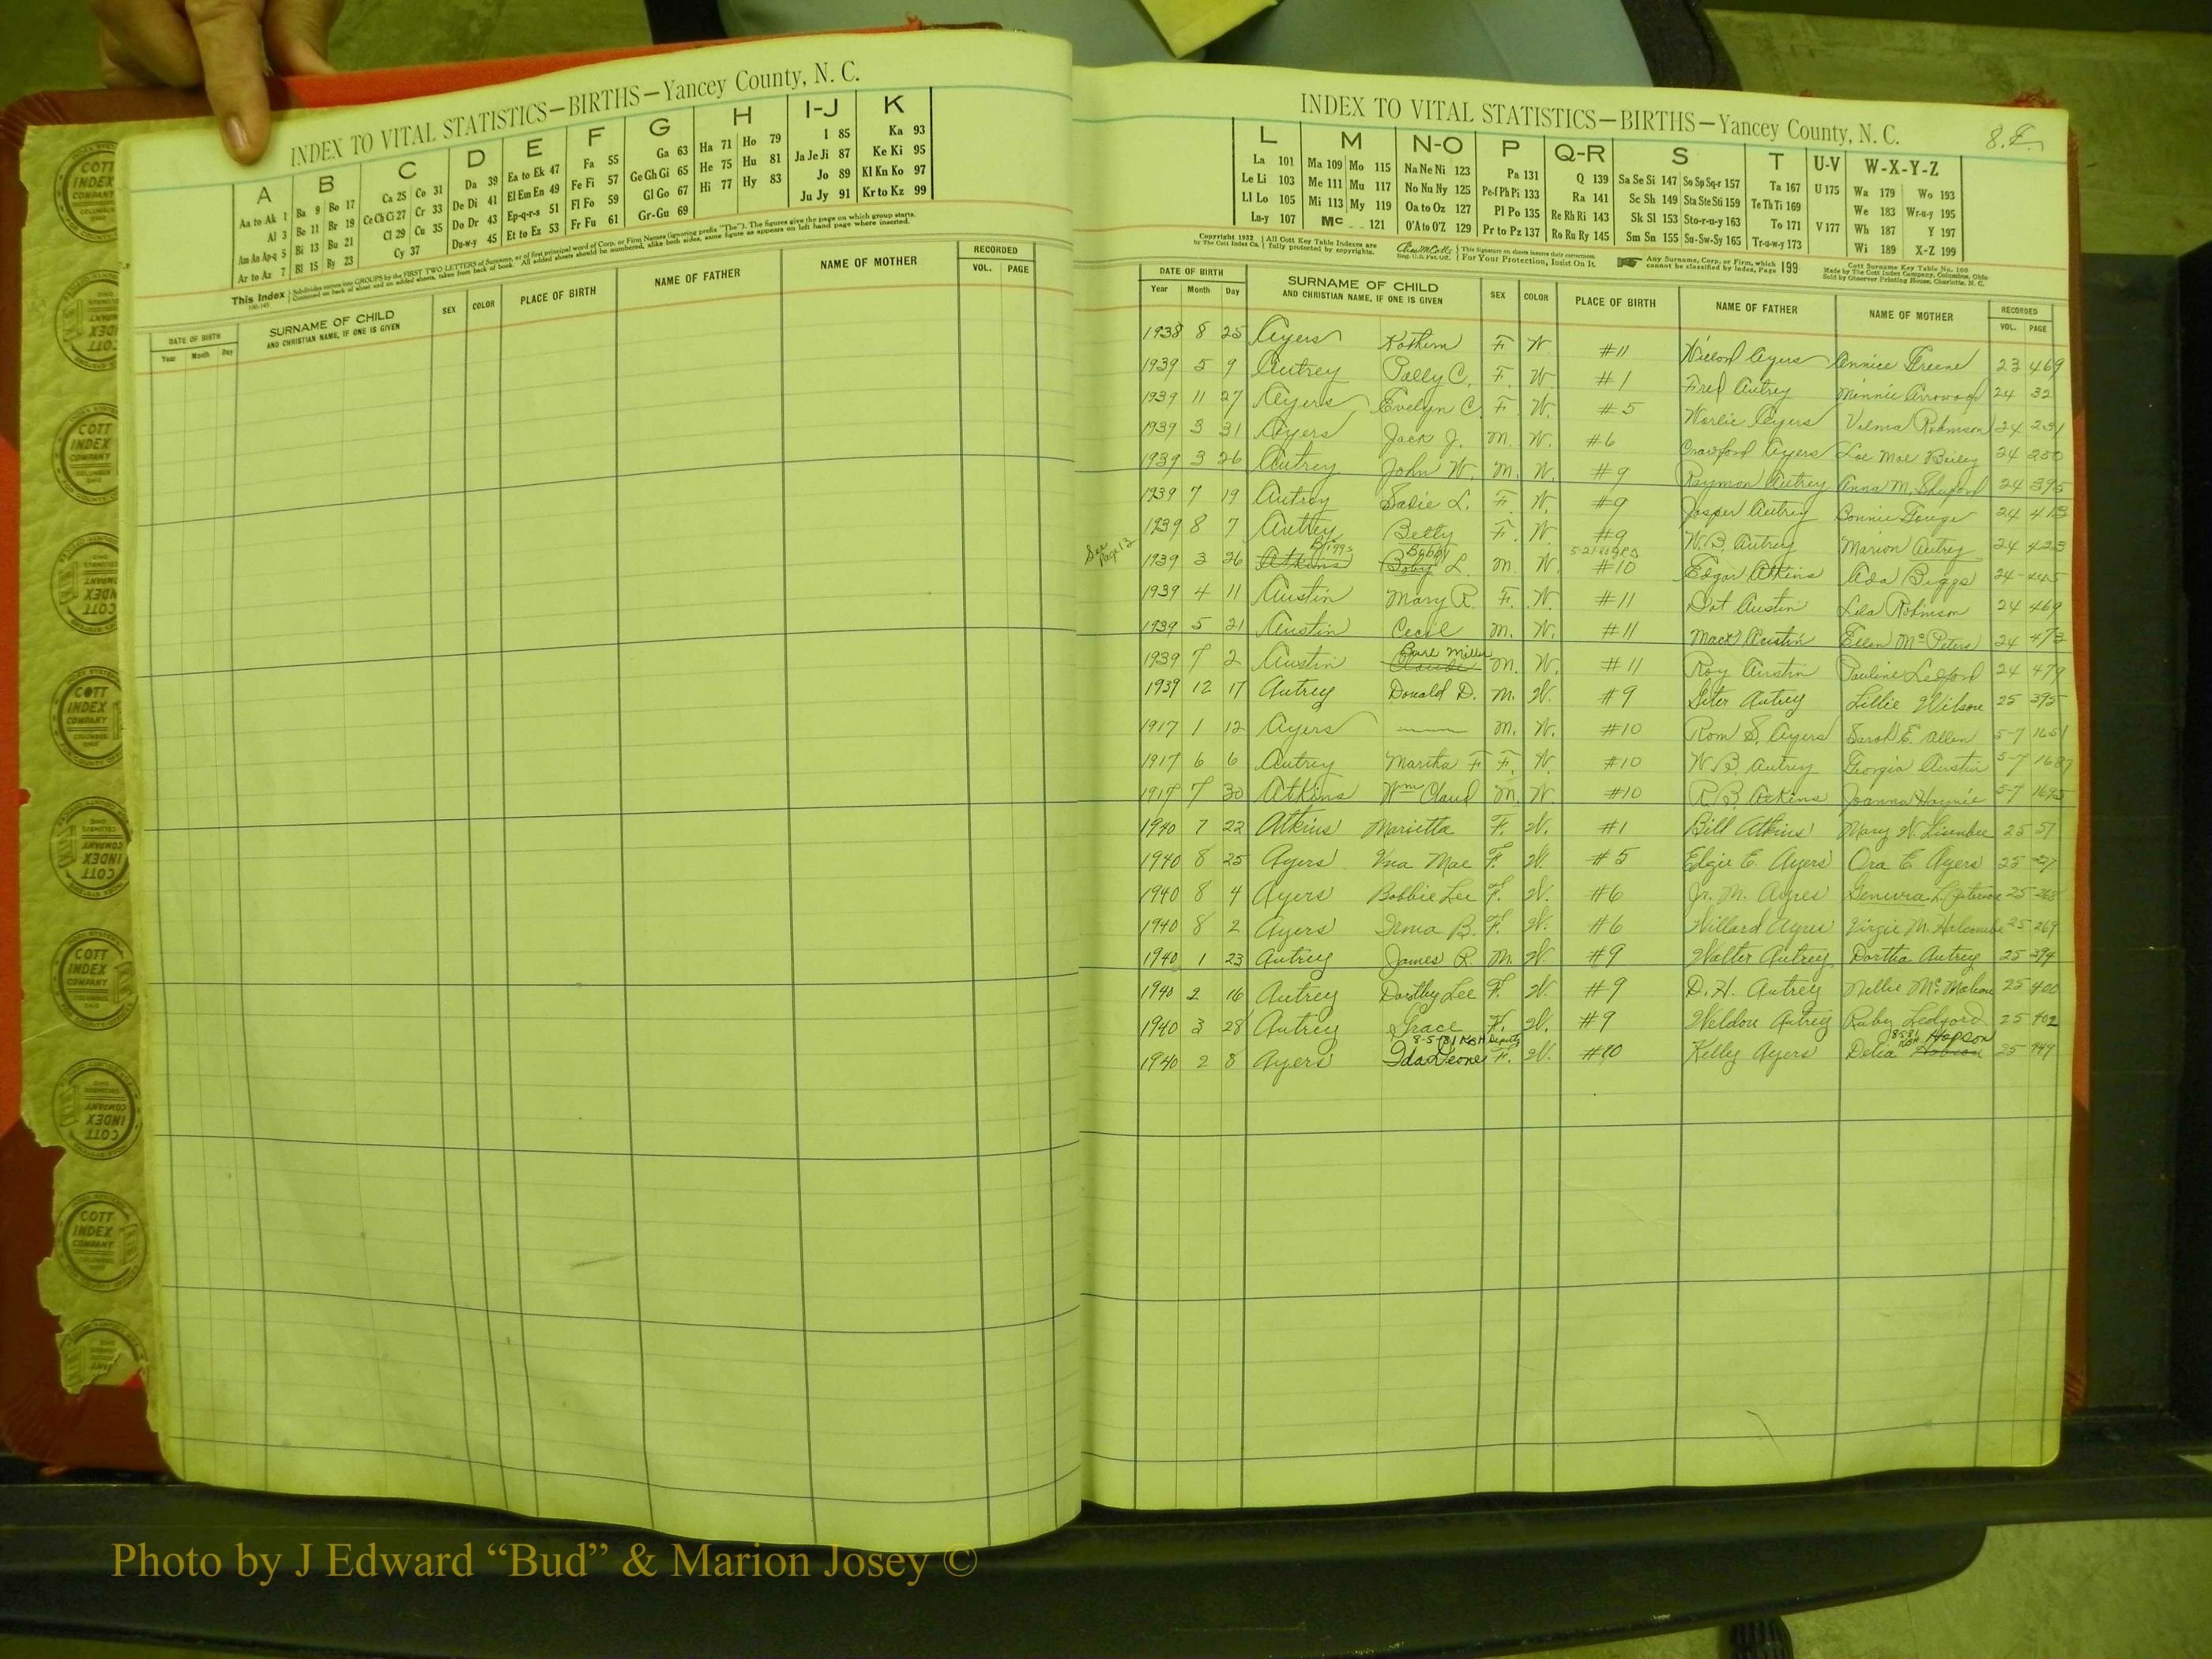 INDEX TO VITAL STATISTICS—BIRTHS—Yancey County, N. C.
A B C D E F G H I-J K
Aa to Ak 1 Ba 9 Bo 17 Ca 25 Co 31 Da 39 Ea to Ek 47 Fa 55 Ga 63 Ha 71 Ho 79 I 85 Ka 93
Al 3 Be 11 Br 19 Ce Ch Ci 27 Cr 33 De Di 41 El Em En 49 Fe Fi 57 Ge Gh Gi 65 He 75 Hu 81 Ja Je Ji 87 Ke Ki 95
Am An Ap-q 5 Bi 13 Bu 21 Cl 29 Cu 35 Do Dr 43 Ep-q-r-s 51 Fl Fo 59 Gl Go 67 Hi 77 Hy 83 Jo 89 Kl Kn Ko 97
Ar to Az 7 Bl 15 By 23 Cy 37 Du-w-y 45 Et to Ez 53 Fr Fu 61 Gr-Gu 69 Ju Jy 91 Kr to Kz 99
This Index Subdivides names into GROUPS by the FIRST TWO LETTERS of Surname, or of first principal word of Corp. or Firm Names (ignoring prefix "The"). The figures give the page on which group starts.
Continued on back of sheet and on added sheets, taken from back of book. All added sheets should be numbered, alike both sides, same figure as appears on left hand page where inserted.
DATE OF BIRTH SURNAME OF CHILD SEX COLOR PLACE OF BIRTH NAME OF FATHER NAME OF MOTHER RECORDED
Year Month Day AND CHRISTIAN NAME, IF ONE IS GIVEN VOL. PAGE
INDEX TO VITAL STATISTICS—BIRTHS—Yancey County, N. C.
L M N-O P Q-R S T U-V W-X-Y-Z
La 101 Ma 109 Mo 115 Na Ne Ni 123 Pa 131 Q 139 Sa Se Si 147 So Sp Sq-r 157 Ta 167 U 175 Wa 179 Wo 193
Le Li 103 Me 111 Mu 117 No Nu Ny 125 Pe-f Ph Pi 133 Ra 141 Sc Sh 149 Sta Ste Sti 159 Te Th Ti 169 We 183 Wr-u-y 195
Ll Lo 105 Mi 113 My 119 Oa to Oz 127 Pl Po 135 Re Rh Ri 143 Sk Sl 153 Sto-r-u-y 163 To 171 V 177 Wh 187 Y 197
Lu-y 107 Mc 121 O'A to O'Z 129 Pr to Pz 137 Ro Ru Ry 145 Sm Sn 155 Su-Sw-Sy 165 Tr-u-w-y 173 Wi 189 X-Z 199
Copyright 1932 by The Cott Index Co. All Cott Key Table Indexes are fully protected by copyrights. This signature on sheets insures their correctness. For Your Protection, Insist On It. Any Surname, Corp. or Firm, which cannot be classified by Index, Page 199
Cott Surname Key Table No. 100
Made by The Cott Index Company, Columbus, Ohio
Sold by Observer Printing House, Charlotte, N. C.
DATE OF BIRTH SURNAME OF CHILD SEX COLOR PLACE OF BIRTH NAME OF FATHER NAME OF MOTHER RECORDED
Year Month Day AND CHRISTIAN NAME, IF ONE IS GIVEN VOL. PAGE
1938 8 25 Ayers F W #11 Ayers Annice Greene 23 469
1939 5 9 Autrey C. F. W. #1 Fred Autrey Minnie Arrowood 24 32
1939 11 27 Ayers Evelyn C F. W. #5 Worlie Ayers Velma Robinson 24 231
1939 3 31 Ayers Jack J. M. W. #6 Crawford Ayers Mae Bailey 24 250
1939 3 26 Autrey John W. M. W. #9 Raymon Autrey Anna M. Shuford 24 395
1939 7 19 Autrey Sadie L. F. W. #9 Jasper Autrey Bonnie Gouge 24 413
1939 8 7 Autrey Betty F. W. #9 W. B. Autrey Marion Autrey 24 423
See Page 13
1939 3 26 Atkins Biggs Boby Bobby L. M. W. #10 Edgar Atkins Ada Biggs 24 445
1939 4 11 Austin Mary R. F. W. #11 Dot Austin Lila Robinson 24 469
1939 5 21 Austin Cecil M. W. #11 Mack Austin Ellen McPeters 24 473
1939 7 2 Austin Claude Miller M. W. #11 Roy Austin Pauline Ledford 24 479
1939 12 17 Autrey Donald D. M. W. #9 Autrey Lillie Wilson 25 395
1917 1 12 Ayers M. W. #10 Rom S. Ayers Sarah E. Allen 5-7 1651
1917 6 6 Autrey Martha F F. W. #10 W. B. Autrey Georgia Austin 5-7
1917 7 30 Atkins Wm Claud M. W. #10 R. B. Atkins Joanna Haynie 5-7 1695
1940 7 22 Atkins Marietta F. W. #1 Bill Atkins Mary W. Lisenbee 25 57
1940 8 25 Ayers Mae F. W. #5 Edgie E. Ayers Ora E. Ayers 25
1940 8 4 Ayers Bobbie Lee F. W. #6 Jr. M. Ayres 25 268
1940 8 2 Ayers Irma B. F. W. #6 Willard Ayres Virgie M. Holcombe 25 269
1940 1 23 Autrey James R. M W. #9 Walter Autrey Dortha Autrey 25 394
1940 2 16 Autrey Dorthy Lee F. W. #9 D. H. Autrey Nellie McMahan 25 400
1940 3 28 Autrey Grace F. W. #9 Weldon Autrey Ruby Ledford 25 402
8-5-81 KBH Deputy
1940 2 8 Ayers Ida Leone F. W. #10 Kelly Ayers Delia Hopson 25 449
COTT INDEX COMPANY COLUMBUS OHIO
Photo by J Edward “Bud” & Marion Josey ©